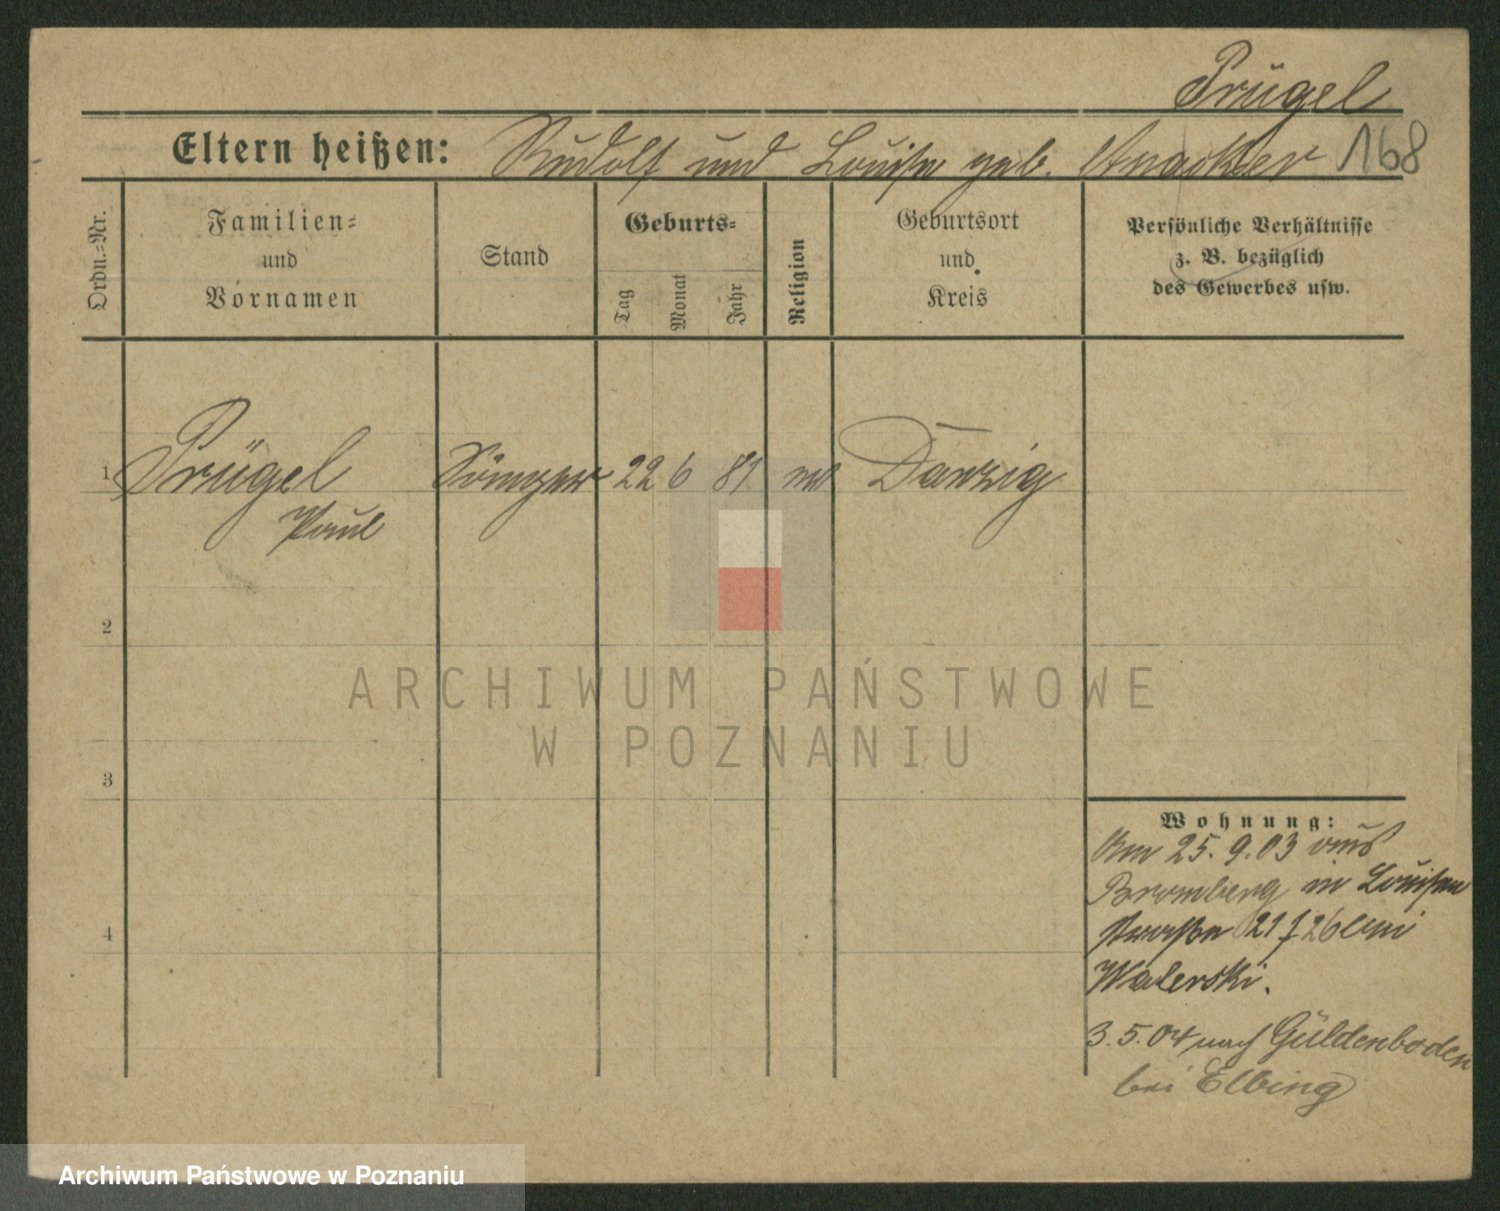 Prügel
Eltern heißen: Rudolf und Louise geb. Anacker 168
Ordn.-Nr.
Familien-
und
Vornamen
Stand
Geburts-
Tag
Monat
Jahr
Religion
Geburtsort
und
Kreis
Persönliche Verhältnisse
z. B. bezüglich
des Gewerbes usw.
1 Prügel 22 6 81 Danzig
Paul
2
3
4
Wohnung:
Am 25. 9. 03 aus
Bromberg in Louisen
straße 21 bei
Walerski.
3. 5. 04 nach Güldenboden
bei Elbing
ARCHIWUM PAŃSTWOWE
W POZNANIU
Archiwum Państwowe w Poznaniu